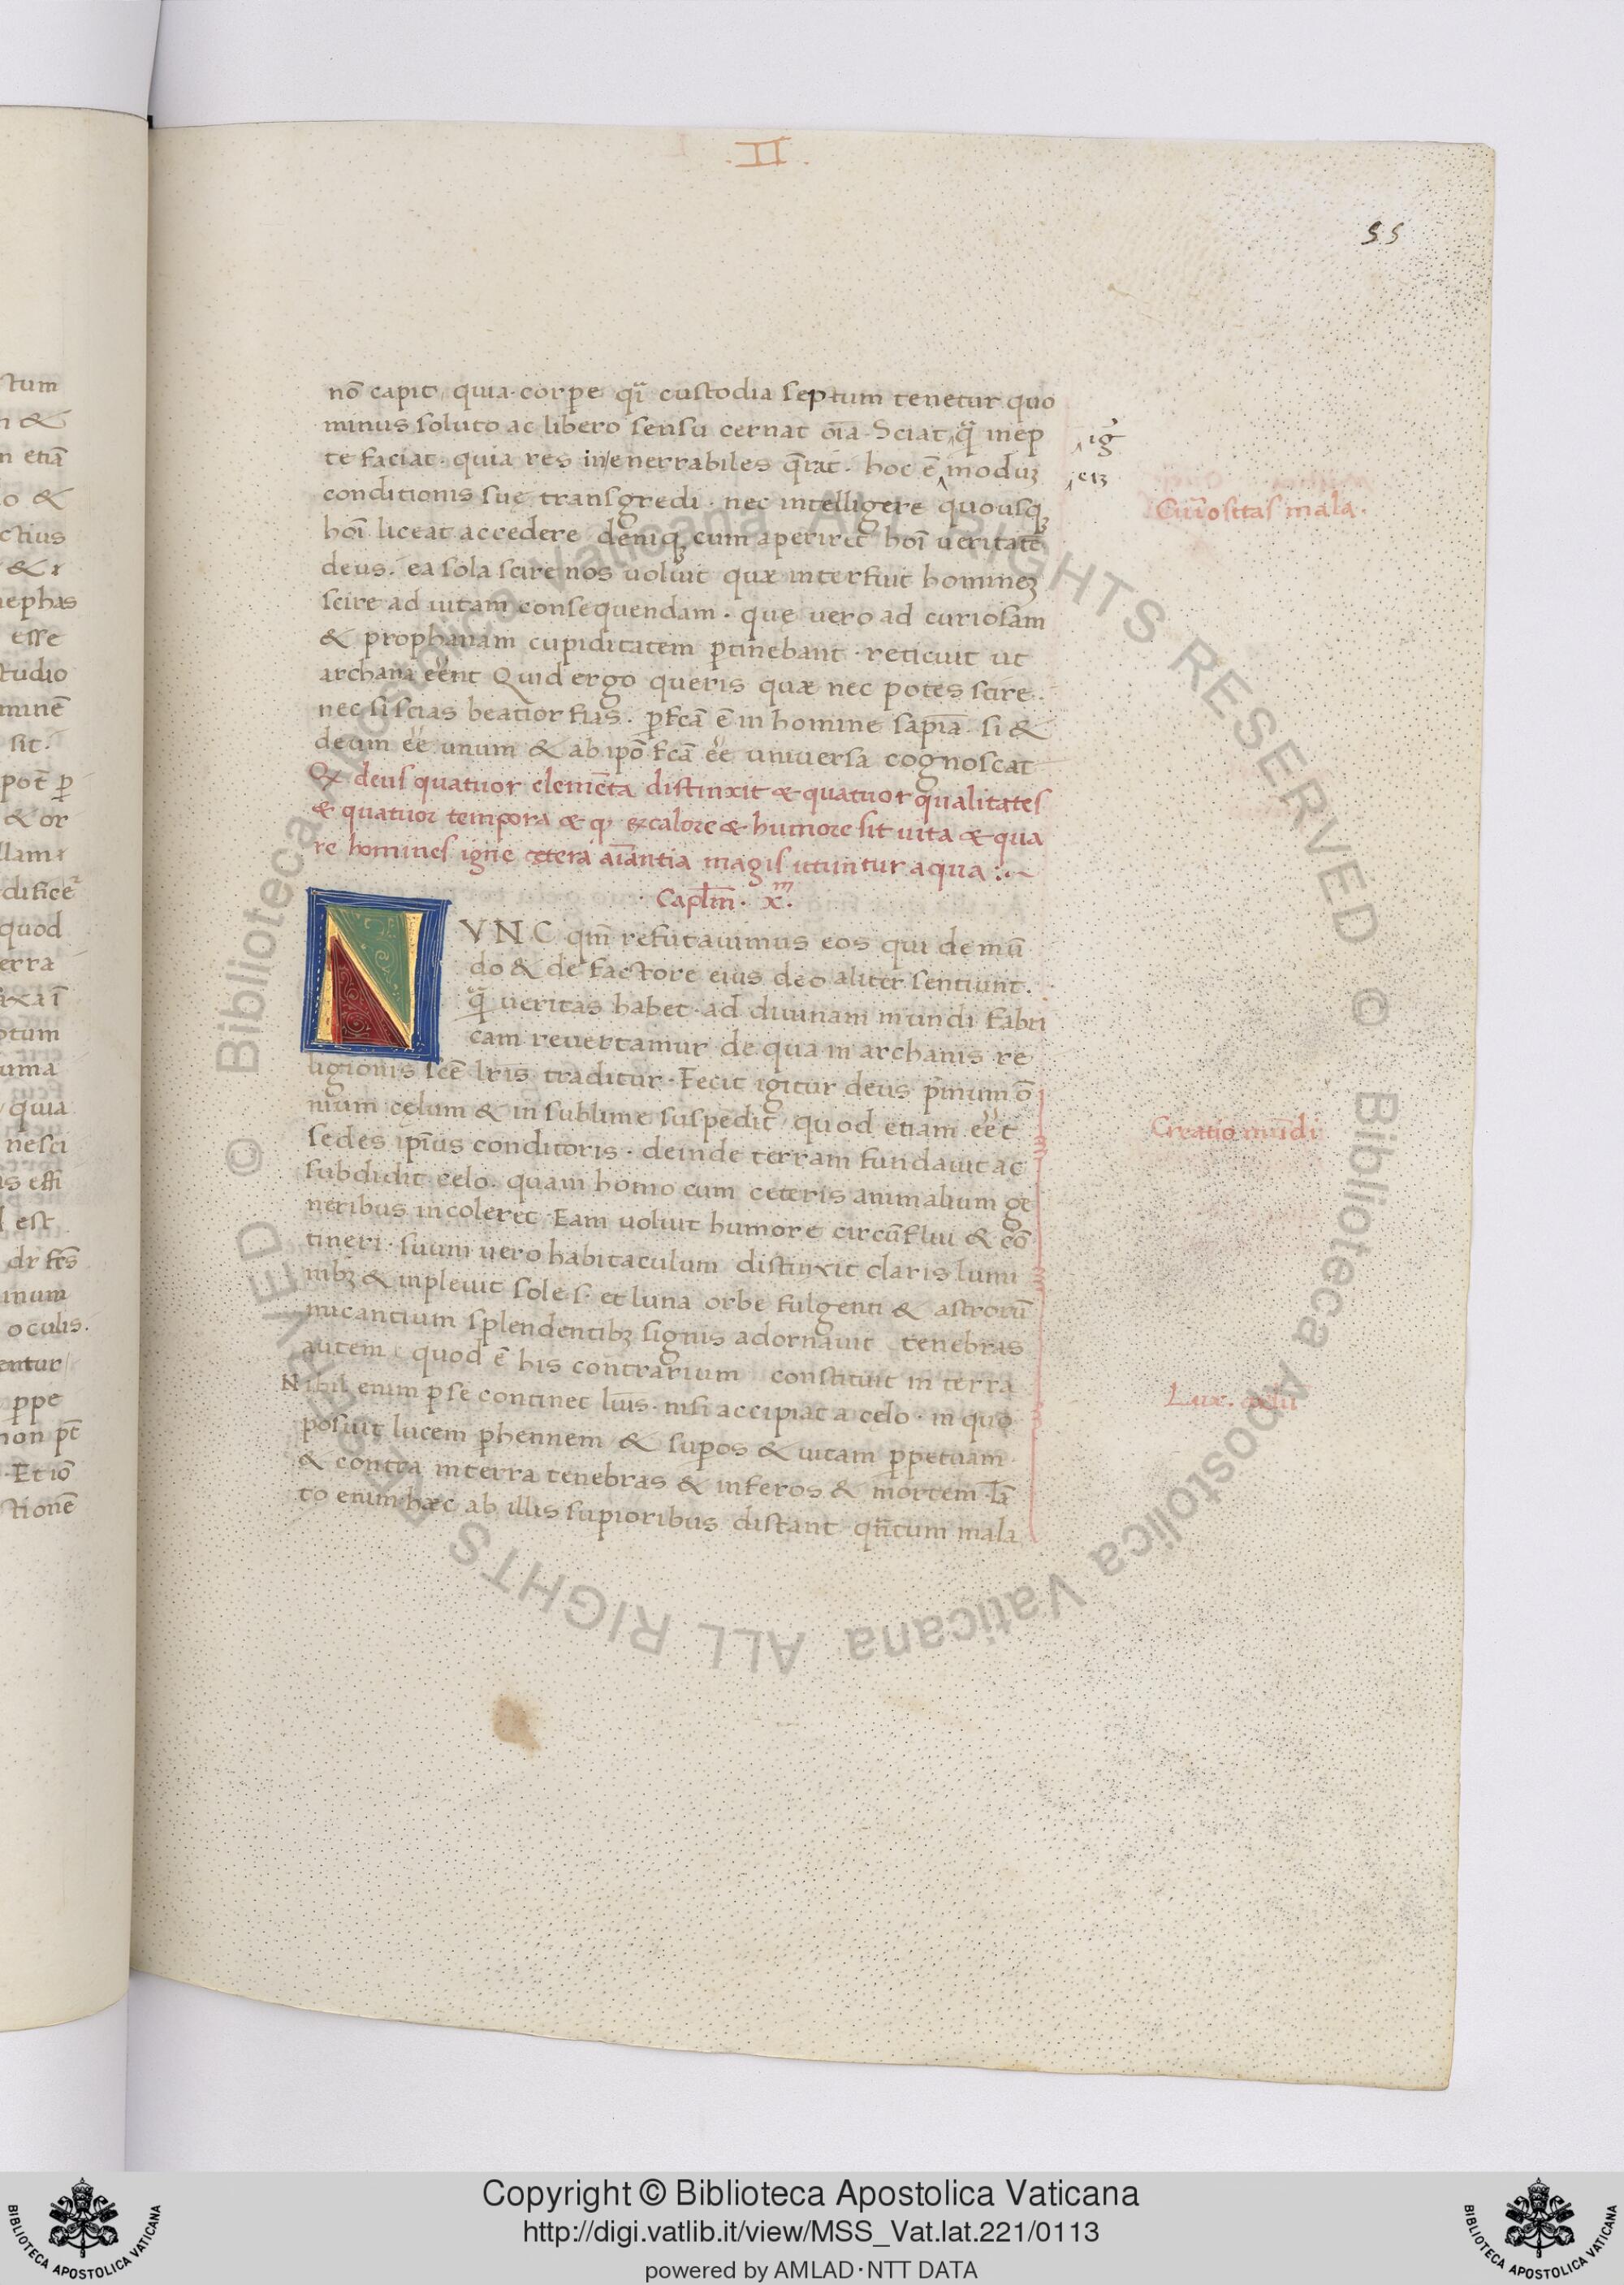 .II.
55
nō capit, quia corpe qͣi custodia septum tenetur quo
minus soluto ac libero sensu cernat oīa. Sciat qͣ inep
ig̃
te faciat. quia res in/enerrabiles q̄rat. hoc ē modūȝ
eiȝ
conditionis suę transgredi. nec intelligere quousqȝ
Curiositas mala.
hoī liceat accedere deniqȝ cum aperiret hoī veritatē
deus. ea sola scire nos uoluit quæ interfuit homineȝ
scire ad uitam consequendam. quę vero ad curiosam
& prophanam cupiditatem ꝑtinebant. reticuit ut
archana eēnt Quid ergo queris quæ nec potes scire.
nec si scias beatior fias. ꝑfcā ē in homine sapīa. si &
deum eē unum & ab ipō fcā eē universa cognoscat
Qꝫ deus quatuor elemēta distinxit & quatuor qualitates
& quatuor tempora & qꝫ ex calore & humore sit uita & qua
re homines igne cętera aīantia magis utuntur aqua:~
Caplm. xᵐ.
NVNC qm̄ refutauimus eos qui de mū
do & de factore eius deo aliter sentiunt.
qͣ veritas habet. ad diuinam mundi fabri
cam revertamur de qua in archanis re
ligionis scē lr̄is traditur. Fecit igitur deus pͥmum ō
nium cęlum & in sublime suspēdit, quod etiam eēt
Creatio mūdi
sedes ipīus conditoris. deinde terram fundauit ac
subdidit celo. quam homo cum ceteris animalium ge
neribus incoleret. Eam uoluit humore circūflui & cō
tineri. suum vero habitaculum distinxit claris lumi
nibȝ & inplevit sole s. et luna orbe fulgenti & astrorū
micantium splendentibȝ signis adornauit tenebras
autem quod ē his contrarium constituit in terra
Nihil enim ꝑ se continet lūis. nisi accipiat a celo. in quo
Lux. cæli
posuit lucem ꝑhennem & supos & uitam ꝑpetuam
& contra in terra tenebras & inferos & mortem. Tā
to enim hæc ab illis supioribus distant qn̄tum mala
Copyright © Biblioteca Apostolica Vaticana
http://digi.vatlib.it/view/MSS_Vat.lat.221/0113
powered by AMLAD·NTT DATA
BIBLIOTECA APOSTOLICA VATICANA
BIBLIOTECA APOSTOLICA VATICANA
© Biblioteca Apostolica Vaticana ALL RIGHTS RESERVED © Biblioteca Apostolica Vaticana ALL RIGHTS RESERVED